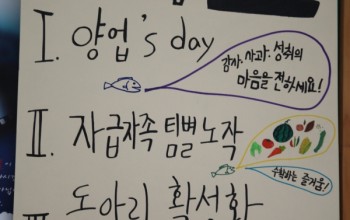 I. 양업's day
감사·사과·성취의
마음을 전하세요!
II. 자급자족 팀별 노작
수확하는 즐거움!
III 동아리 활성화